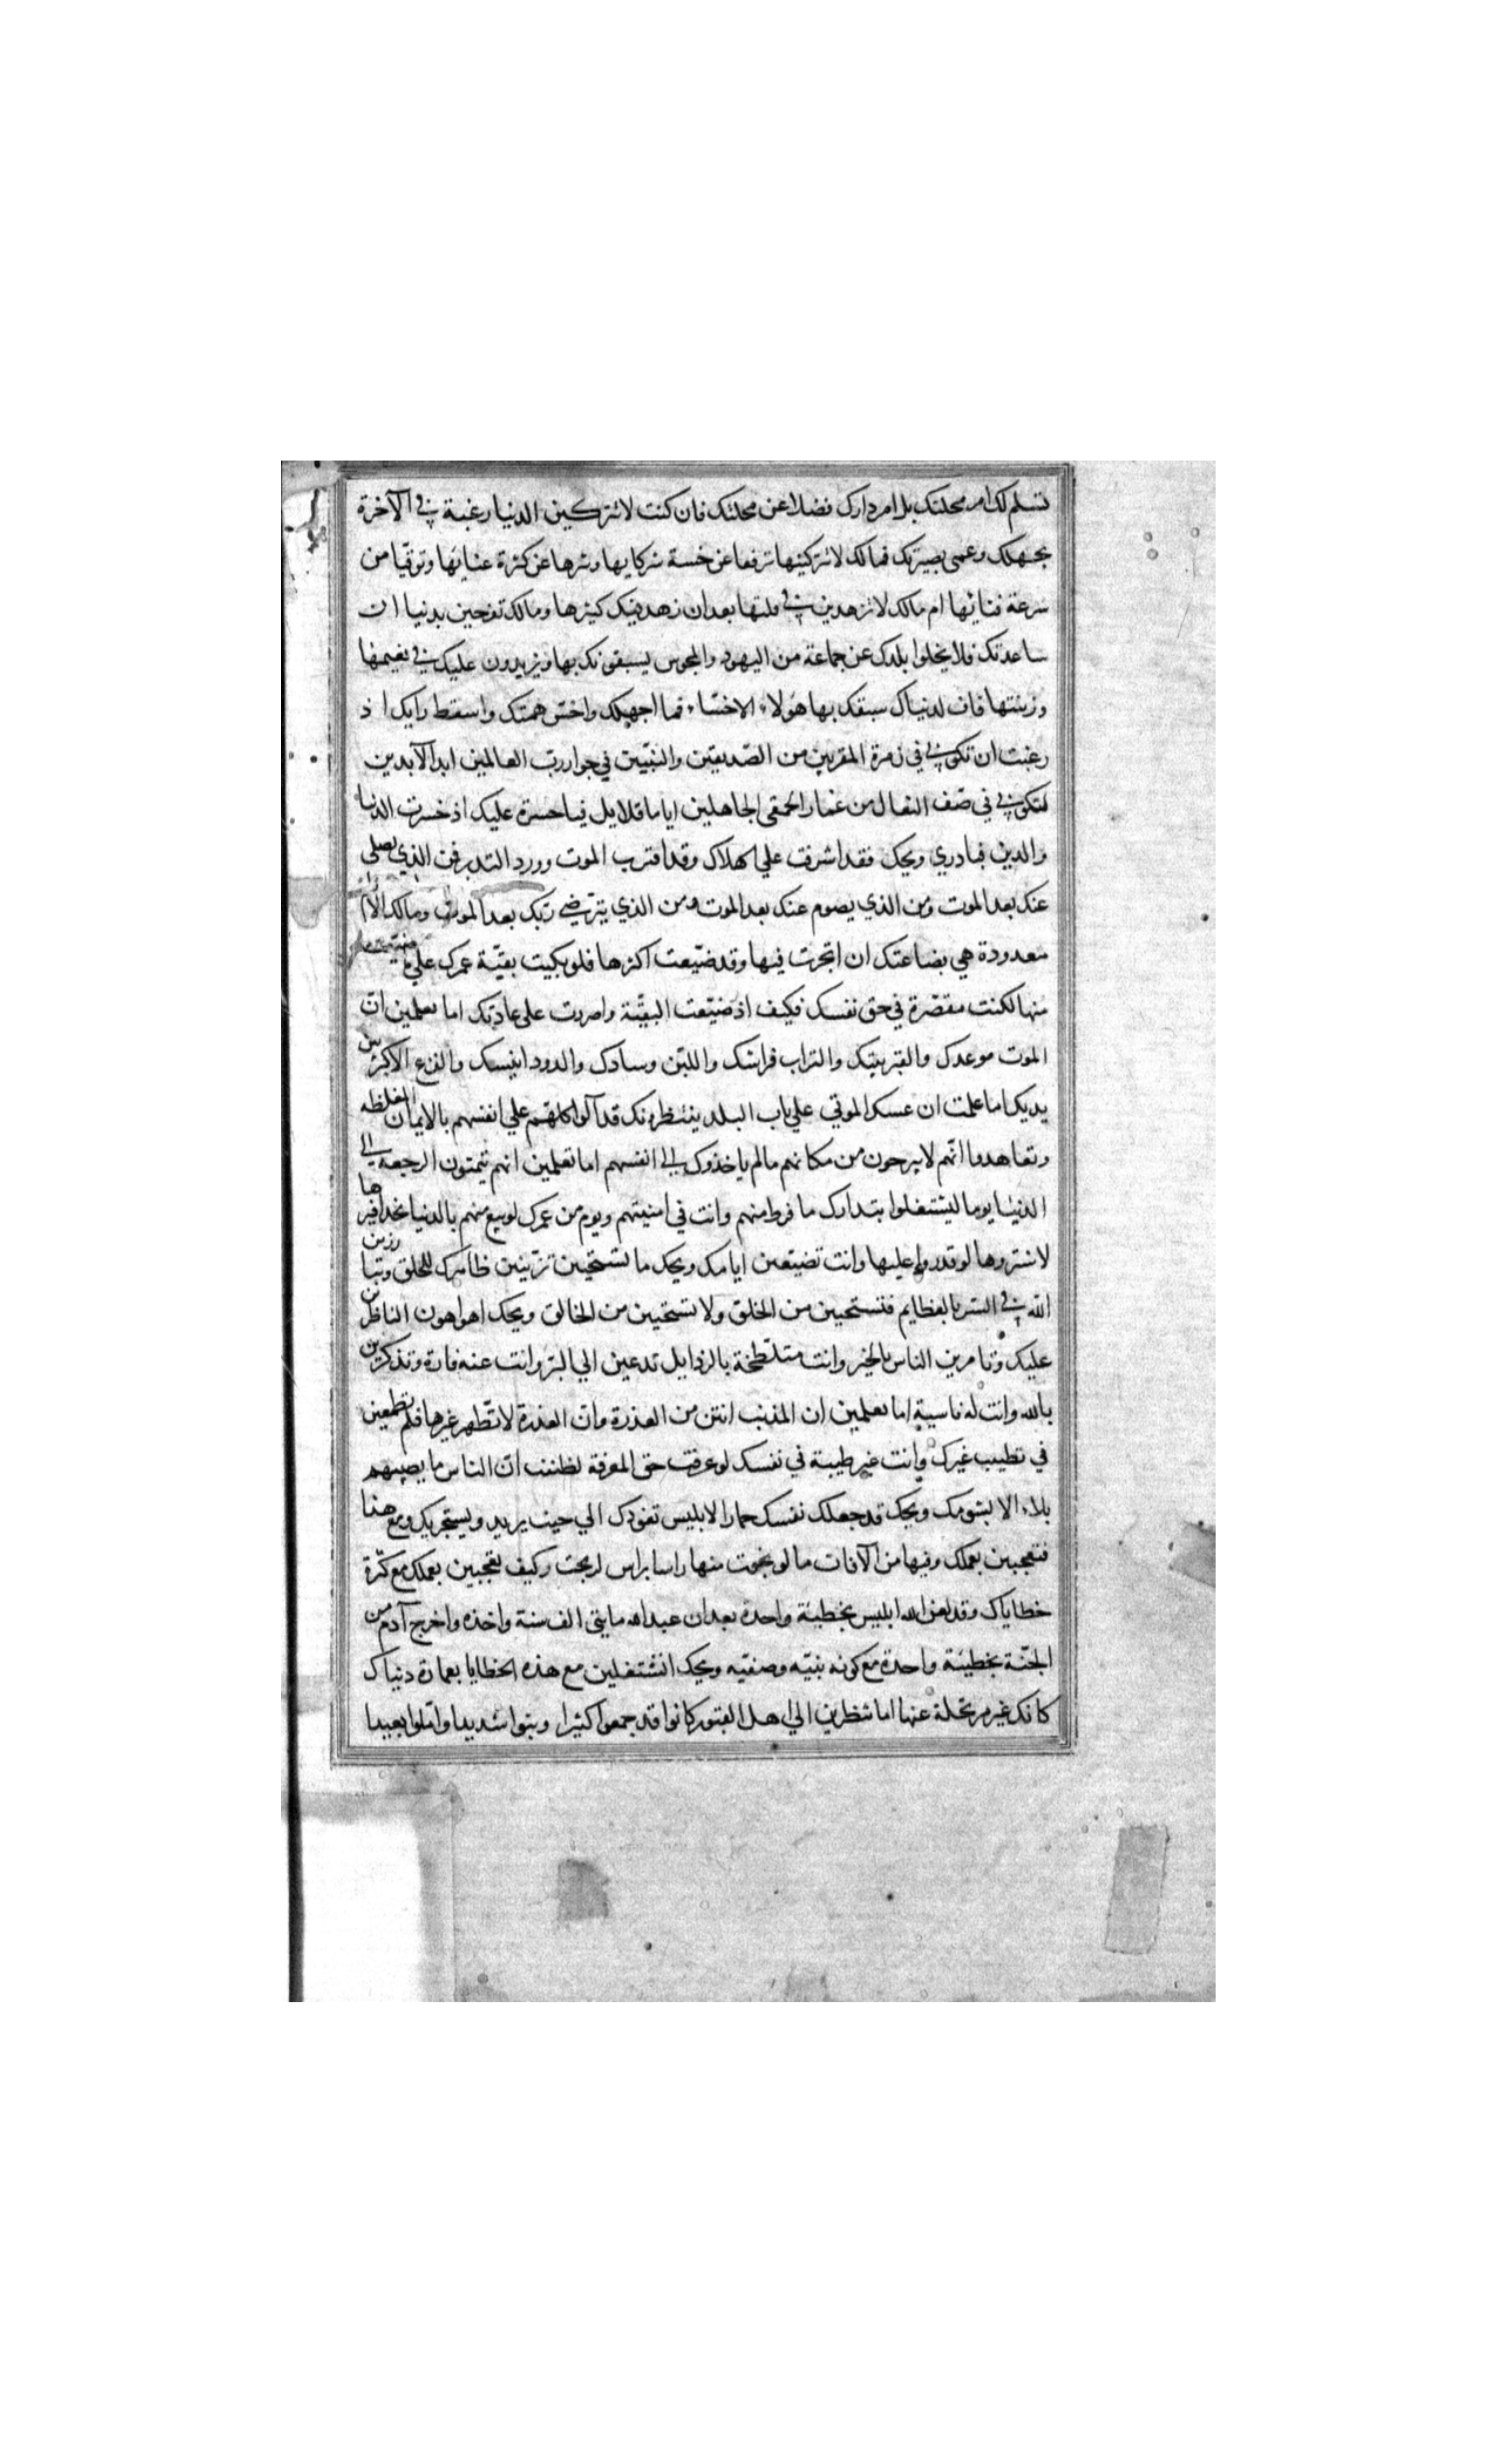 تسلم لك امر محلتك بل امر دارك فضلا عن محلتك فان كنت لا تتركين الدنيا رغبة في الآخرة
بجهلك وعمى بصيرتك فمالك لا تتركينها ترفعا عن خسة شركايها وتنزها عن كثرة عنائها وتوقيا من
سرعة فنائها ام مالك لا تزهدين في قلتها بعد ان زهد فيك كثيرها ومالك تفرحين بدنيا ان
ساعدتك فلا يخلوا بلدك عن جماعة من اليهود والمجوس يسبقونك بها ويزيدون عليك في نعيمها
وزينتها فاف لدنياك سبقك بها هؤلاء الاخسّاء فما اجهلك واخسّ همتك واسقط رايك اذ
رغبت ان تكوني في زمرة المقربين من الصّديقين والنبيّين في جوار ربّ العالمين ابد الآبدين
لتكوني في صفّ النعال من غمار الحمقى الجاهلين اياما قلايل فيا حسرة عليك اذ خسرت الدنيا
والدين فبادري ويحك فقد اشرفت علي الهلاك وقد اقترب الموت وورد النذير فمن الذي يصلي
عنك بعد الموت ومن الذي يصوم عنك بعد الموت ومن الذي يترضي ربّك بعد الموت ومالك الا ايام
معدودة هي بضاعتك ان اتجرت فيها وقد ضيّعت اكثرها فلو بكيت بقيّة عمرك علي ما ضيّعت
منها لكنت مقصّرة في حق نفسك فكيف اذ ضيّعت البقيّة واصررت على عادتك اما تعلمين انّ
الموت موعدك والقبر بيتك والتراب فراشك واللبن وسادك والدود انيسك والفزع الاكبر بين
يديك اما علمت ان عسكر الموتي علي باب البلد ينتظرونك قد آلوا كلهم علي انفسهم بالايمان المغلظه
وتعاهدوا انّهم لا يبرحون من مكانهم مالم ياخذوك الي انفسهم اما تعلمين انهم يتمنون الرجعه الي
الدنيا يوما ليشتغلوا بتدارك ما فرط منهم وانت في امنيتهم ويوم من عمرك لو بيع منهم بالدنيا بحذافيرها
لاشتروها لو قدروا عليها وانت تضيّعين ايامك ويحك ما تستحيين تزيّنين ظاهرك للخلق وتبارزين
الله في السّر بالعظايم فتستحين من الخلق ولا تستحيين من الخالق ويحك اهو اهون الناظرين
عليك وتامرين الناس بالخير وانت متلطّخة بالرذايل تدعين الي البرّ وانت عنه فارة وتذكرين
بالله وانت له ناسية اما تعلمين ان المذنب انتن من العذرة وان العذرة لا تطّهر غيرها فلم تطمعين
في تطييب غيرك وانت غير طيبة في نفسك لو عرفت حق المعرفة لظننت انّ الناس ما يصيبهم
بلاء الا بشومك ويحك قد جعلك نفسك حمارا لابليس تقودك الي حيث يريد ويستجريك ومع هذا
فتعجبين بعملك وفيها من الآفات ما لو نجوت منها راسا براس لربحت وكيف تعجبين بعملك مع كثرة
خطاياك وقد لعن الله ابليس بخطيئة واحدة بعد ان عبد الله مايتى الف سنة واخذه واخرج آدم من
الجنّة بخطيئة واحدة مع كونه نبيّه وصفيّه ويحك اتشتغلين مع هذه الخطايا بعمارة دنياك
كانك غير مرتحلة عنها اما تنظرين الي اهل القبور كانوا قد جمعوا كثيرا وبنوا شديدا واملوا بعيدا